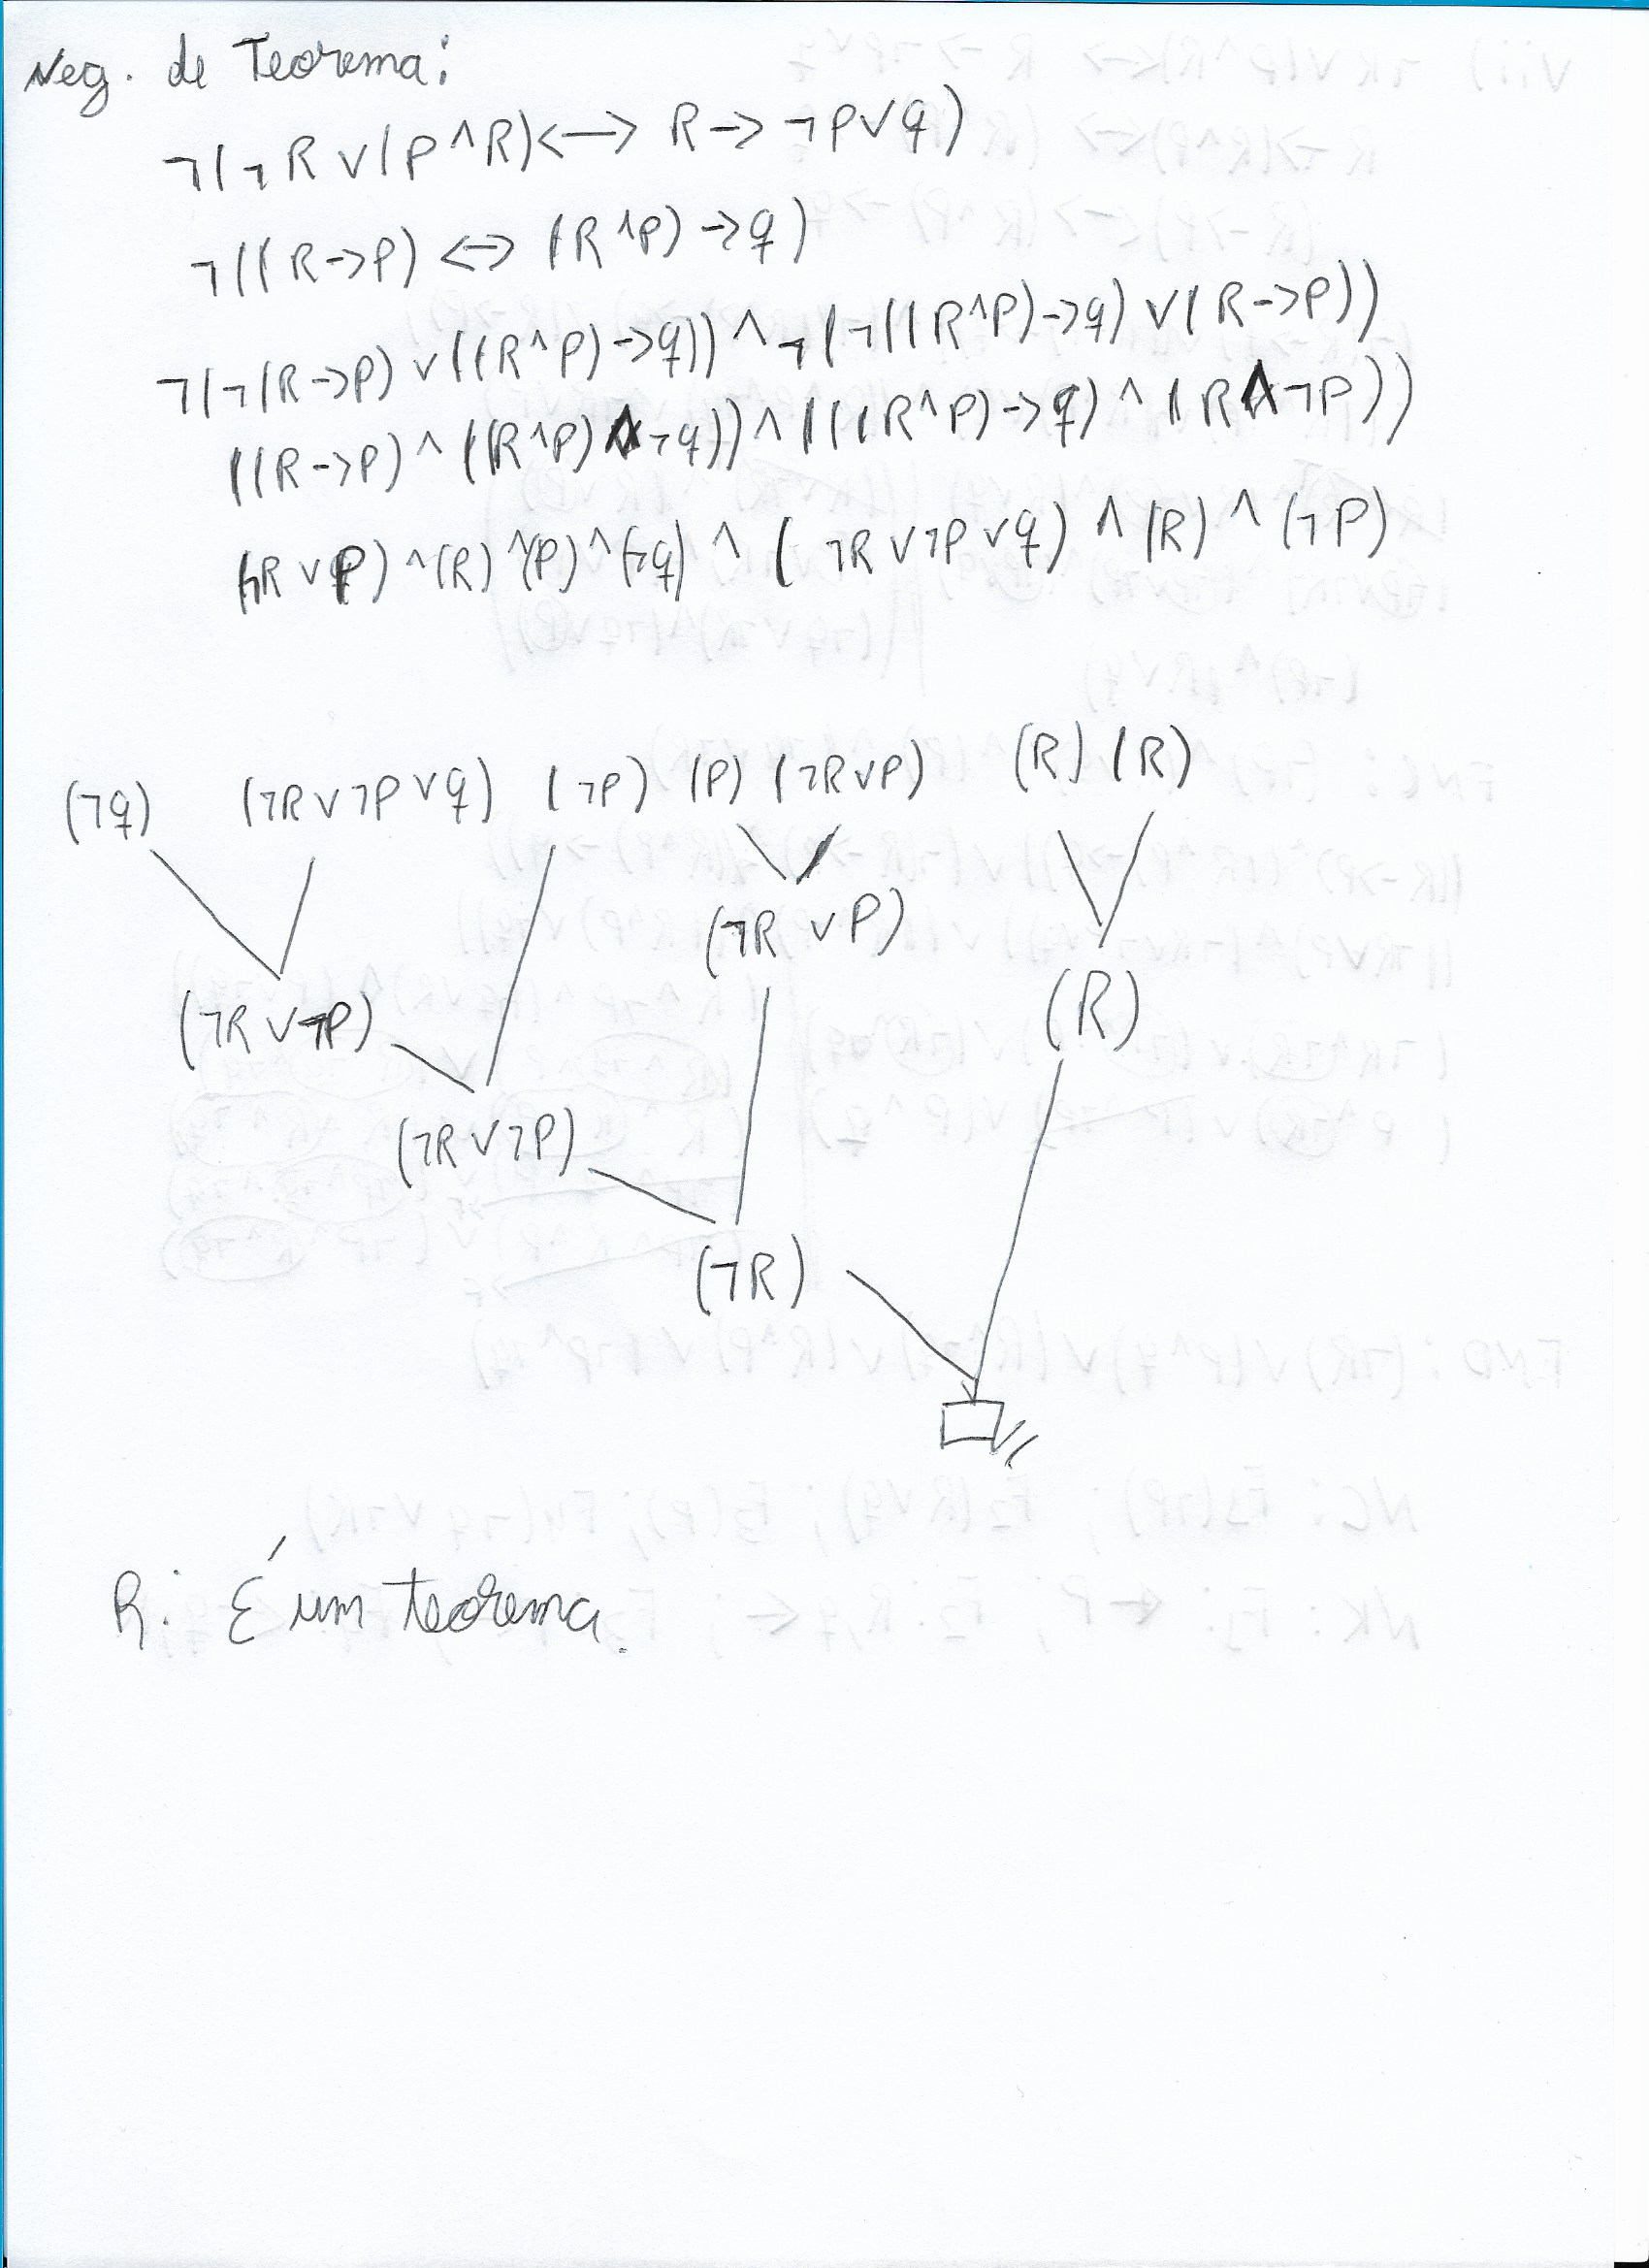 Neg. de Teorema:
¬(¬R ∨ (P ^ R) <-> R -> ¬P ∨ q)
¬((R->P) <-> (R ^ P) -> q)
¬(¬(R->P) ∨ ((R^P)->q)) ^ ¬(¬((R^P)->q) ∨ (R->P))
((R->P) ^ ((R^P) ^ ¬q)) ^ (((R^P)->q) ^ (R ^ ¬P))
(¬R ∨ P) ^ (R) ^ (P) ^ (¬q) ^ (¬R ∨ ¬P ∨ q) ^ (R) ^ (¬P)
(¬q) (¬R ∨ ¬P ∨ q) (¬P) (P) (¬R ∨ P) (R) (R)
(¬R ∨ P)
(¬R ∨ ¬P) (R)
(¬R ∨ ¬P)
(¬R)
R: É um teorema.